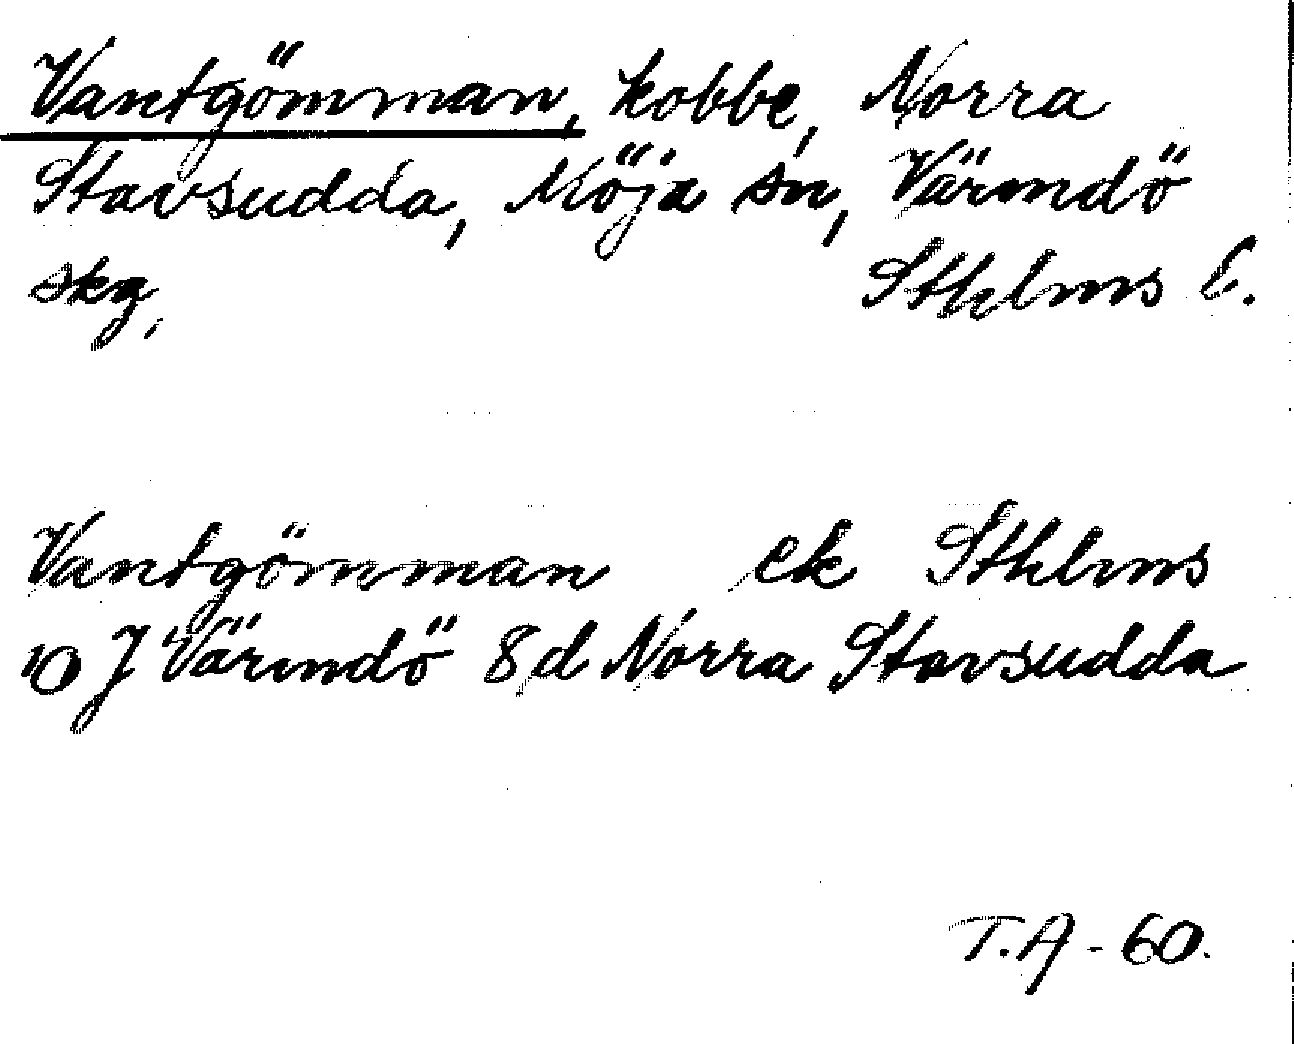 Vantgömman, kobbe, Norra
Stavsudda, Möja sn, Värmdö
skg, Sthlms l.
Vantgömman ek Sthlms
10 J Värmdö 8d Norra Stavsudda
T.A - 60.